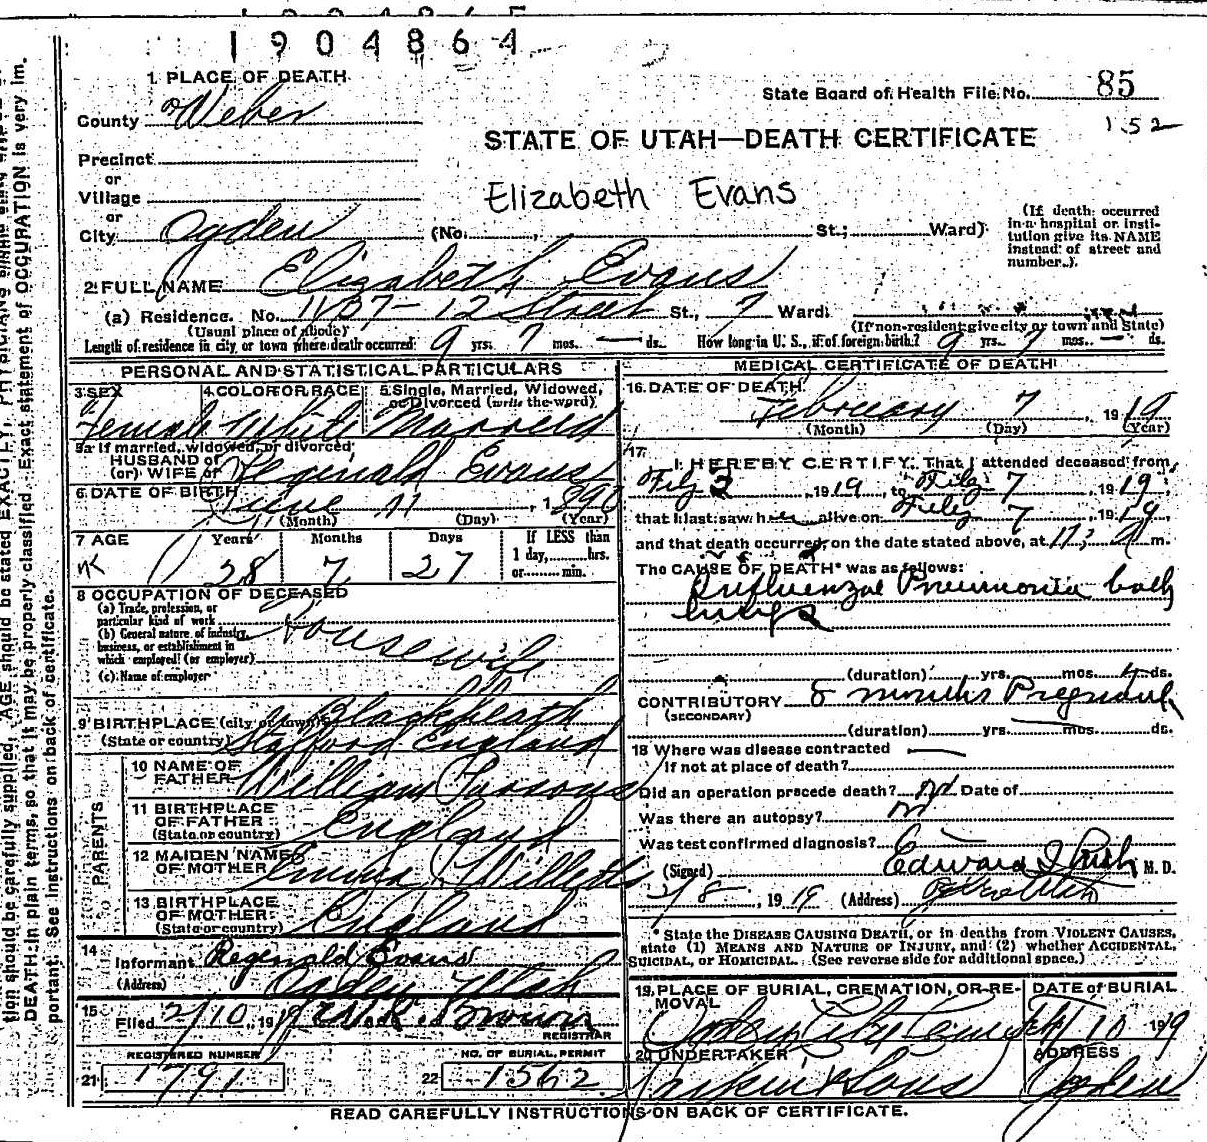 1904864
1. PLACE OF DEATH
State Board of Health File No. 85
County Weber
152
STATE OF UTAH—DEATH CERTIFICATE
Precinct
or
Elizabeth Evans
Village
or
City Ogden (No. , St.; Ward)
(If death occurred in a hospital or institution give its NAME instead of street and number.)
2. FULL NAME Elizabeth Evans
(a) Residence. No. 1137-12 Street St., 7 Ward.
(Usual place of abode) (If non-resident give city or town and State)
Length of residence in city or town where death occurred 9 yrs. 7 mos. — ds. How long in U. S., if of foreign birth? 9 yrs. 7 mos. — ds.
PERSONAL AND STATISTICAL PARTICULARS
3 SEX 4 COLOR OR RACE 5 Single, Married, Widowed, or Divorced (write the word)
Female White Married
5a If married, widowed, or divorced
HUSBAND of
(or) WIFE of Reginald Evans
6 DATE OF BIRTH June 11, 1890
(Month) (Day) (Year)
7 AGE Years Months Days If LESS than
28 7 27 1 day, hrs.
or min.
8 OCCUPATION OF DECEASED
(a) Trade, profession, or
particular kind of work
(b) General nature of industry,
business, or establishment in
which employed (or employer) Housewife
(c) Name of employer
9 BIRTHPLACE (city or town) Blackheath
(State or country) Stafford England
PARENTS
10 NAME OF FATHER William Parsons
11 BIRTHPLACE OF FATHER (State or country) England
12 MAIDEN NAME OF MOTHER Emma Willetts
13 BIRTHPLACE OF MOTHER (State or country) England
14
Informant Reginald Evans
(Address) Ogden Utah
15 Filed 2/10, 1919 Brown
REGISTRAR
REGISTERED NUMBER NO. OF BURIAL PERMIT
21 1791 22 1562
MEDICAL CERTIFICATE OF DEATH
16 DATE OF DEATH
February 7, 1919
(Month) (Day) (Year)
17
I HEREBY CERTIFY, That I attended deceased from
Feby 3, 1919, to Feby 7, 1919,
that I last saw her alive on Feby 7, 1919
and that death occurred, on the date stated above, at m.
The CAUSE OF DEATH* was as follows:
Influenzal Pneumonia both
lungs
(duration) yrs. mos. 4 ds.
CONTRIBUTORY 8 months Pregnant
(SECONDARY)
(duration) yrs. mos. ds.
18 Where was disease contracted
if not at place of death?
Did an operation precede death? No Date of
Was there an autopsy? No
Was test confirmed diagnosis?
(Signed) Edward I Rich M. D.
2/8, 1919 (Address)
*State the DISEASE CAUSING DEATH, or in deaths from VIOLENT CAUSES,
state (1) MEANS AND NATURE OF INJURY, and (2) whether ACCIDENTAL,
SUICIDAL, or HOMICIDAL. (See reverse side for additional space.)
19. PLACE OF BURIAL, CREMATION, OR REMOVAL DATE of BURIAL
Ogden City Cemetery 10 1919
20 UNDERTAKER ADDRESS
Larkin & Sons Ogden
READ CAREFULLY INSTRUCTIONS ON BACK OF CERTIFICATE.
tion should be carefully supplied. AGE should be stated EXACTLY. PHYSICIANS
DEATH in plain terms, so that it may be properly classified. Exact statement of OCCUPATION is very im-
portant. See instructions on back of certificate.